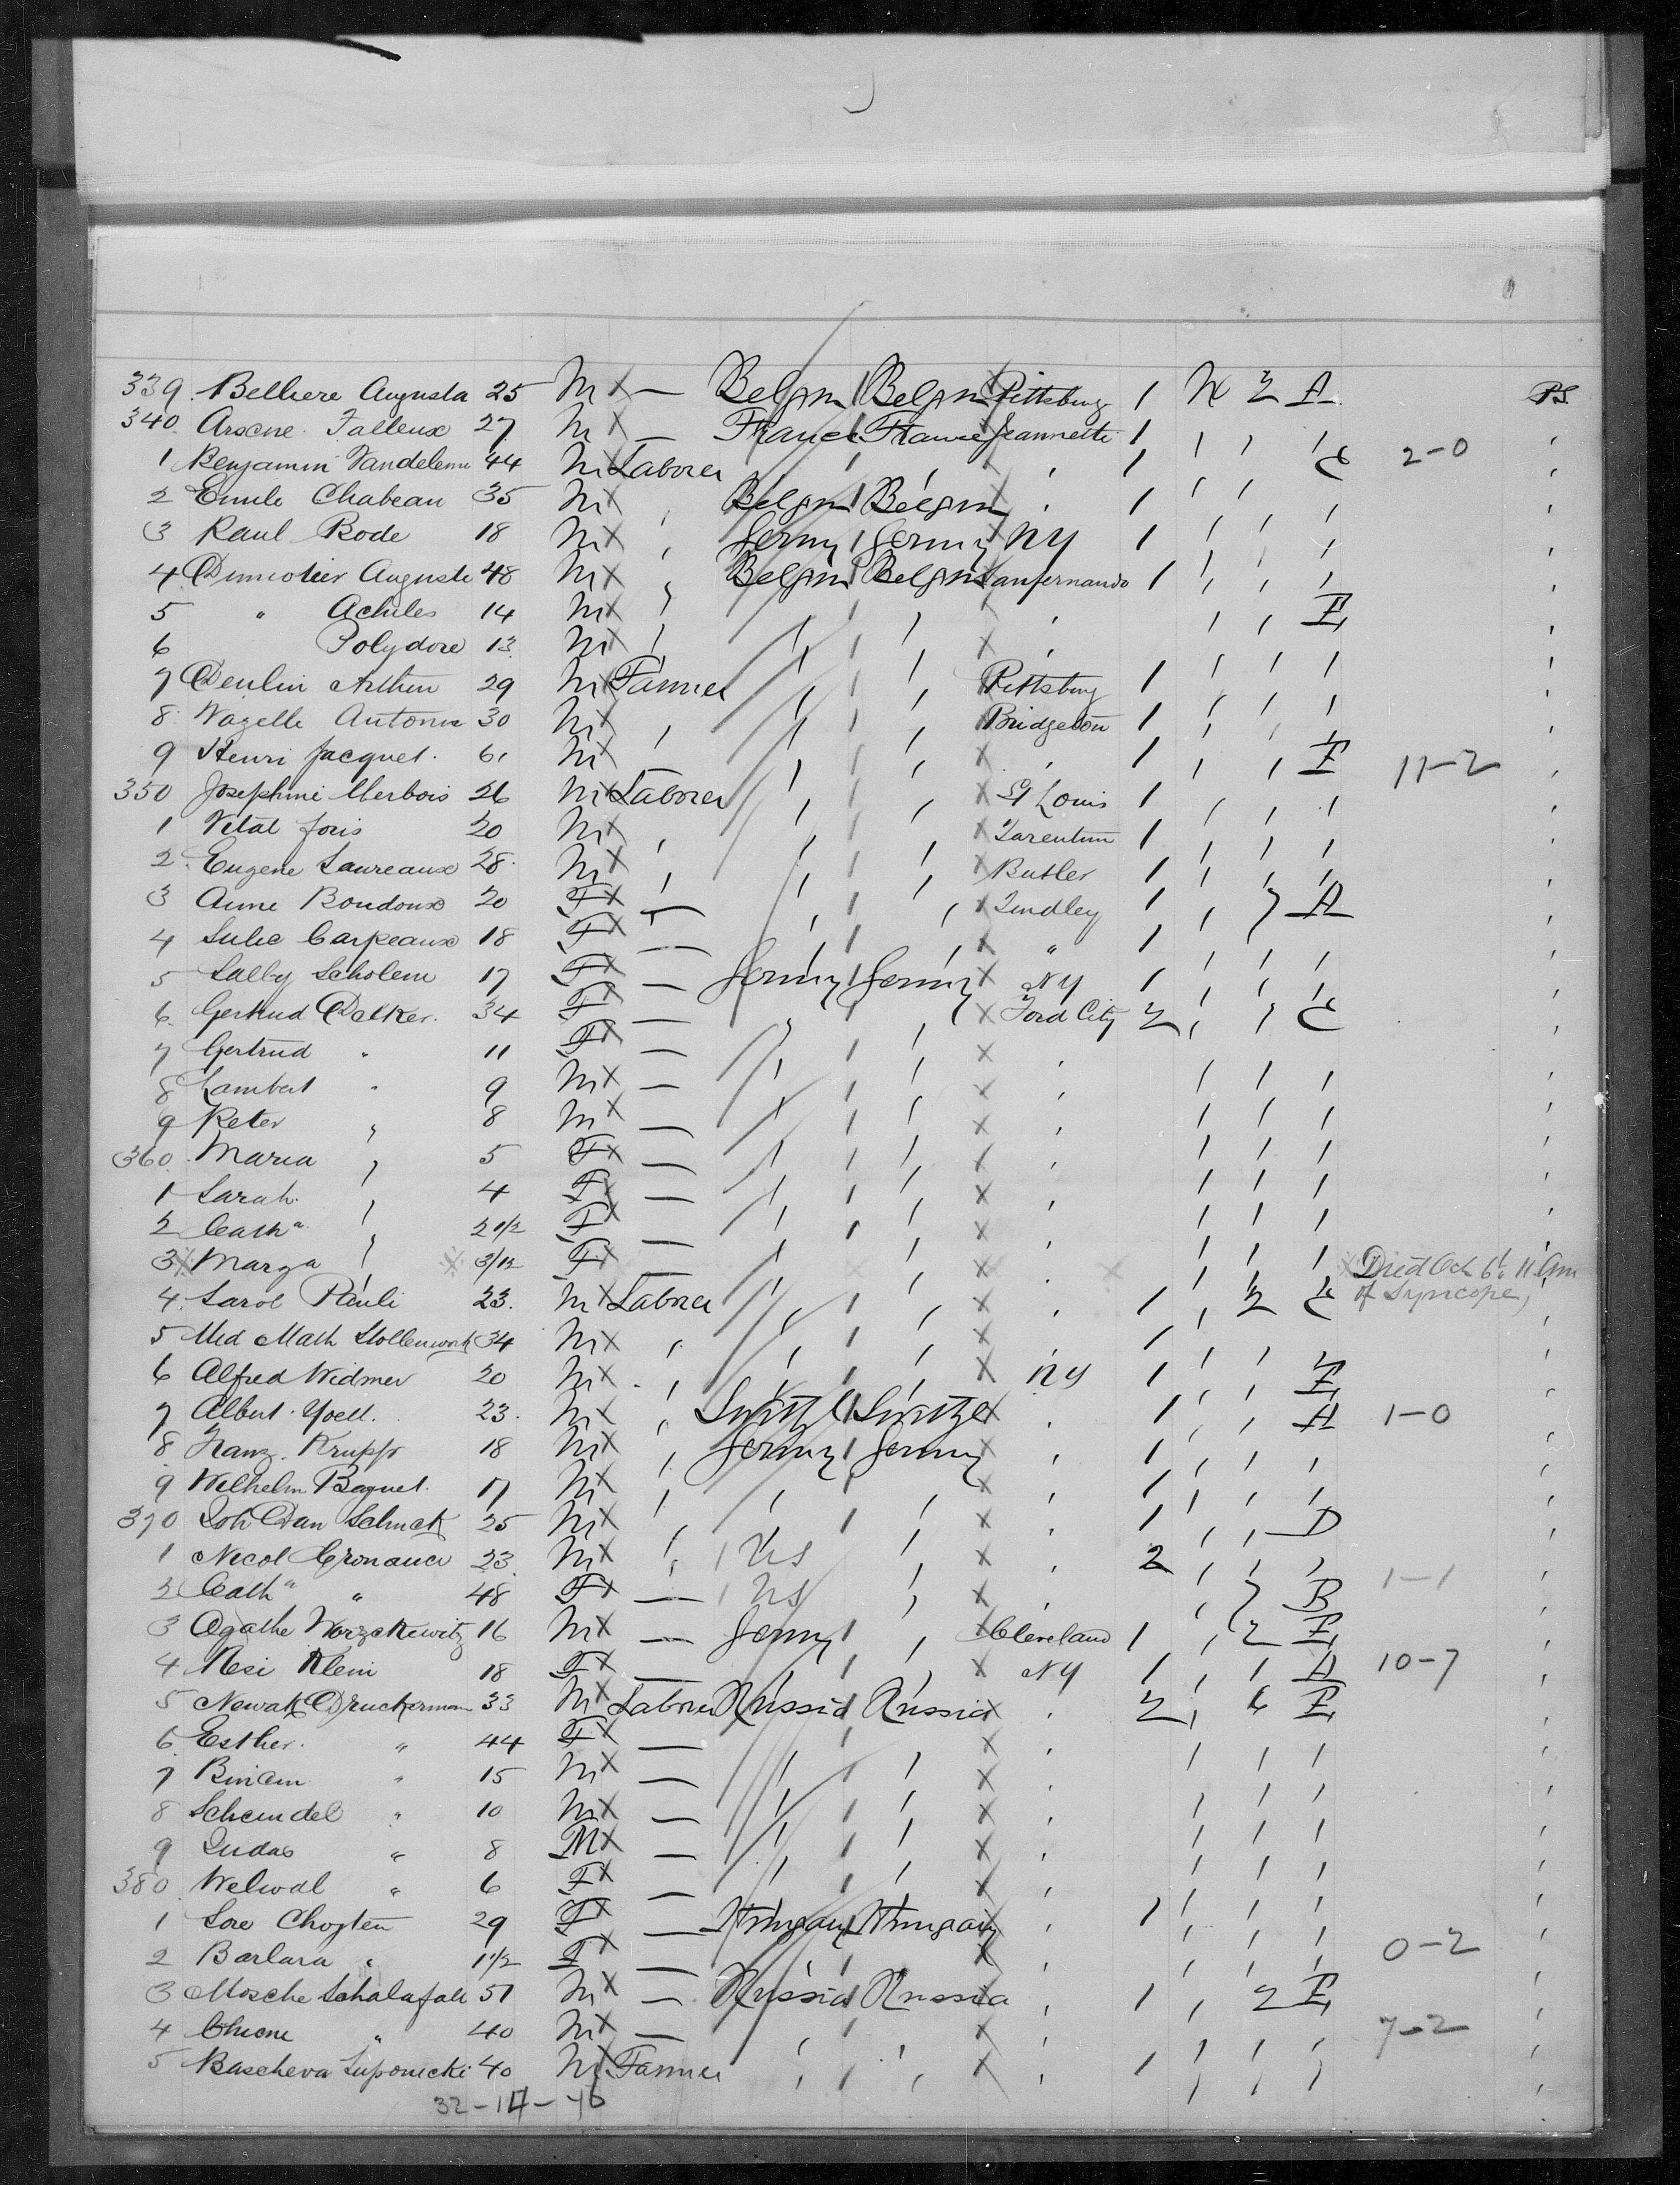 339 Belliere Augusta 25 M X — Belgm Belgm Pittsburg 1 N 2 A PS
340 Arsene Falleux 27 M X — France France Jeannette 1
1 Benjamin 44 M X Laborer 1 C 2-0
2 Emile Chabeau 35 M X Belgm Belgm 1
3 Paul Bode 18 M X Germy Germy NY 1
4 Auguste 48 M X Belgm Belgm Sanfernando 1
5 " Achiles 14 M X E
6 Polydore 13 M X
7 Deulin Arthur 29 M X Farmer Pittsburg 1
8 Wazelle Antoine 30 M X Bridgeton 1
9 Henri Jacquet 61 M X — 1 E 11-2
350 Josephine Merbois 26 M X Laborer St Louis 1
1 Vital Joris 20 M X Tarentum 1
2 Eugene Laureaux 28 M X Butler 1
3 Anne Boudoux 20 F X — Lindley 1 A
4 Julie Carpeaux 18 F X — " 1
5 Sally Scholem 17 F X — Germy Germy NY 1
6 Gertrud Delker 34 F X — Ford City 2 C
7 Gertrud " 11 F X —
8 Lambert " 9 M X —
9 Peter " 8 M X —
360 Maria " 5 F X —
1 Sarah " 4 F X —
2 Cath " 2 1/2 F X —
3 X Marga " X 3/12 F X — X Died Oct 6th 11 Am
4 Carol Pauli 23 M X Laborer 1 2 C of Syncope,
5 Math Stollenwerk 34 M X 1
6 Alfred Widmer 20 M X NY 1 E
7 Albert Yoell 23 M X Switzl Switzl 1 A 1-0
8 Franz Krupp 18 M X Germy Germy 1
9 Wilhelm Baguet 17 M X 1
370 Joh Dan Schuck 25 M X 1 D
1 Nicol Cronauer 23 M X US 2
2 Cath " 48 F X — US B 1-1
3 Agathe Worzekewitz 16 M X — Germy Cleveland 1 2 E
4 Resi Klein 18 F X — NY 1 A 10-7
5 Newak Druckerman 33 M X Laborer Russia Russia 2 E
6 Esther " 44 F X —
7 Biniam " 15 M X —
8 Scheindel " 10 M X —
9 Judas " 8 M X —
380 Welwal " 6 F X —
1 Sore 29 F X — Hungary Hungary 1
2 Barbara " 1 1/2 F X — 0-2
3 Mosche 51 M X — Russia Russia 1 2 E
4 Chiene " 40 M X — 7-2
5 Bascheva Suponicki 40 M X Farmer 1
32-14-46